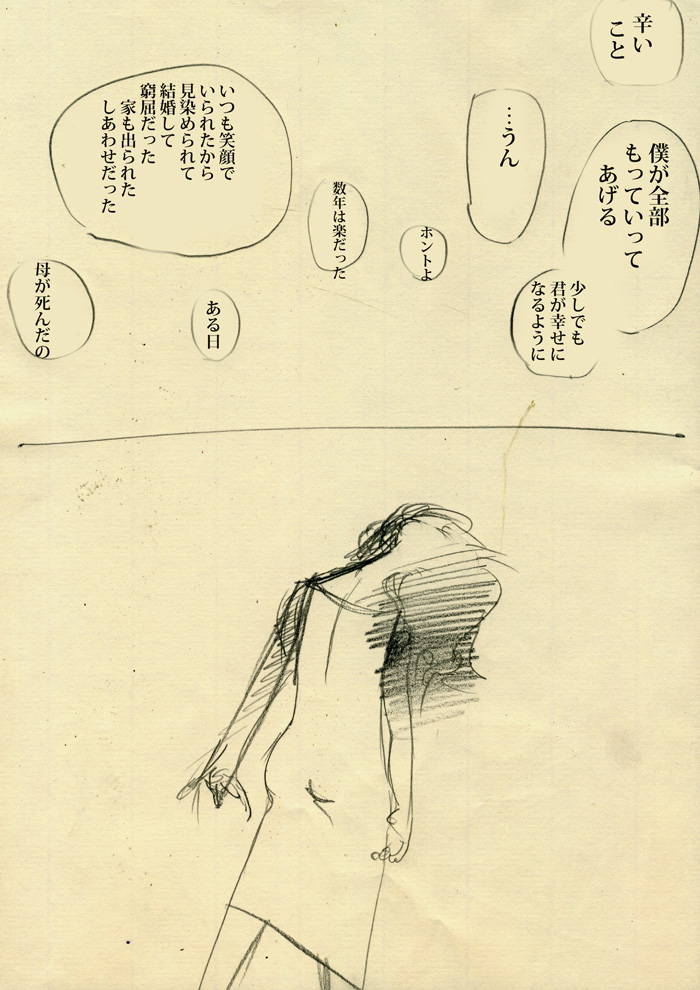 辛い
こと
僕が全部
もっていって
あげる
少しでも
君が幸せに
なるように
…うん
ホントよ
数年は楽だった
いつも笑顔で
いられたから
見染められて
結婚して
窮屈だった
家も出られた
しあわせだった
ある日
母が死んだの